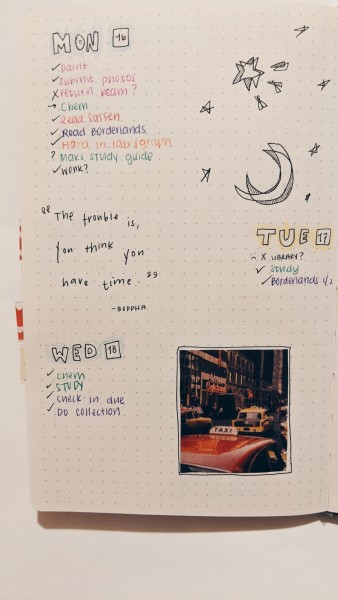 MON 16
✓ paint
✓ submit photos
X return beam?
→ Chem
✓ Read Sassen
✓ Read Borderlands
✓ Hand in lab/graph
? Make study guide
✓ WORK?
"The trouble is,
you think you
have time."
-BUDDHA
TUE 17
X LIBRARY?
✓ study
✓ Borderlands 1/2
WED 18
✓ chem
✓ STUDY
✓ check in due
✓ DO collection
TAXI